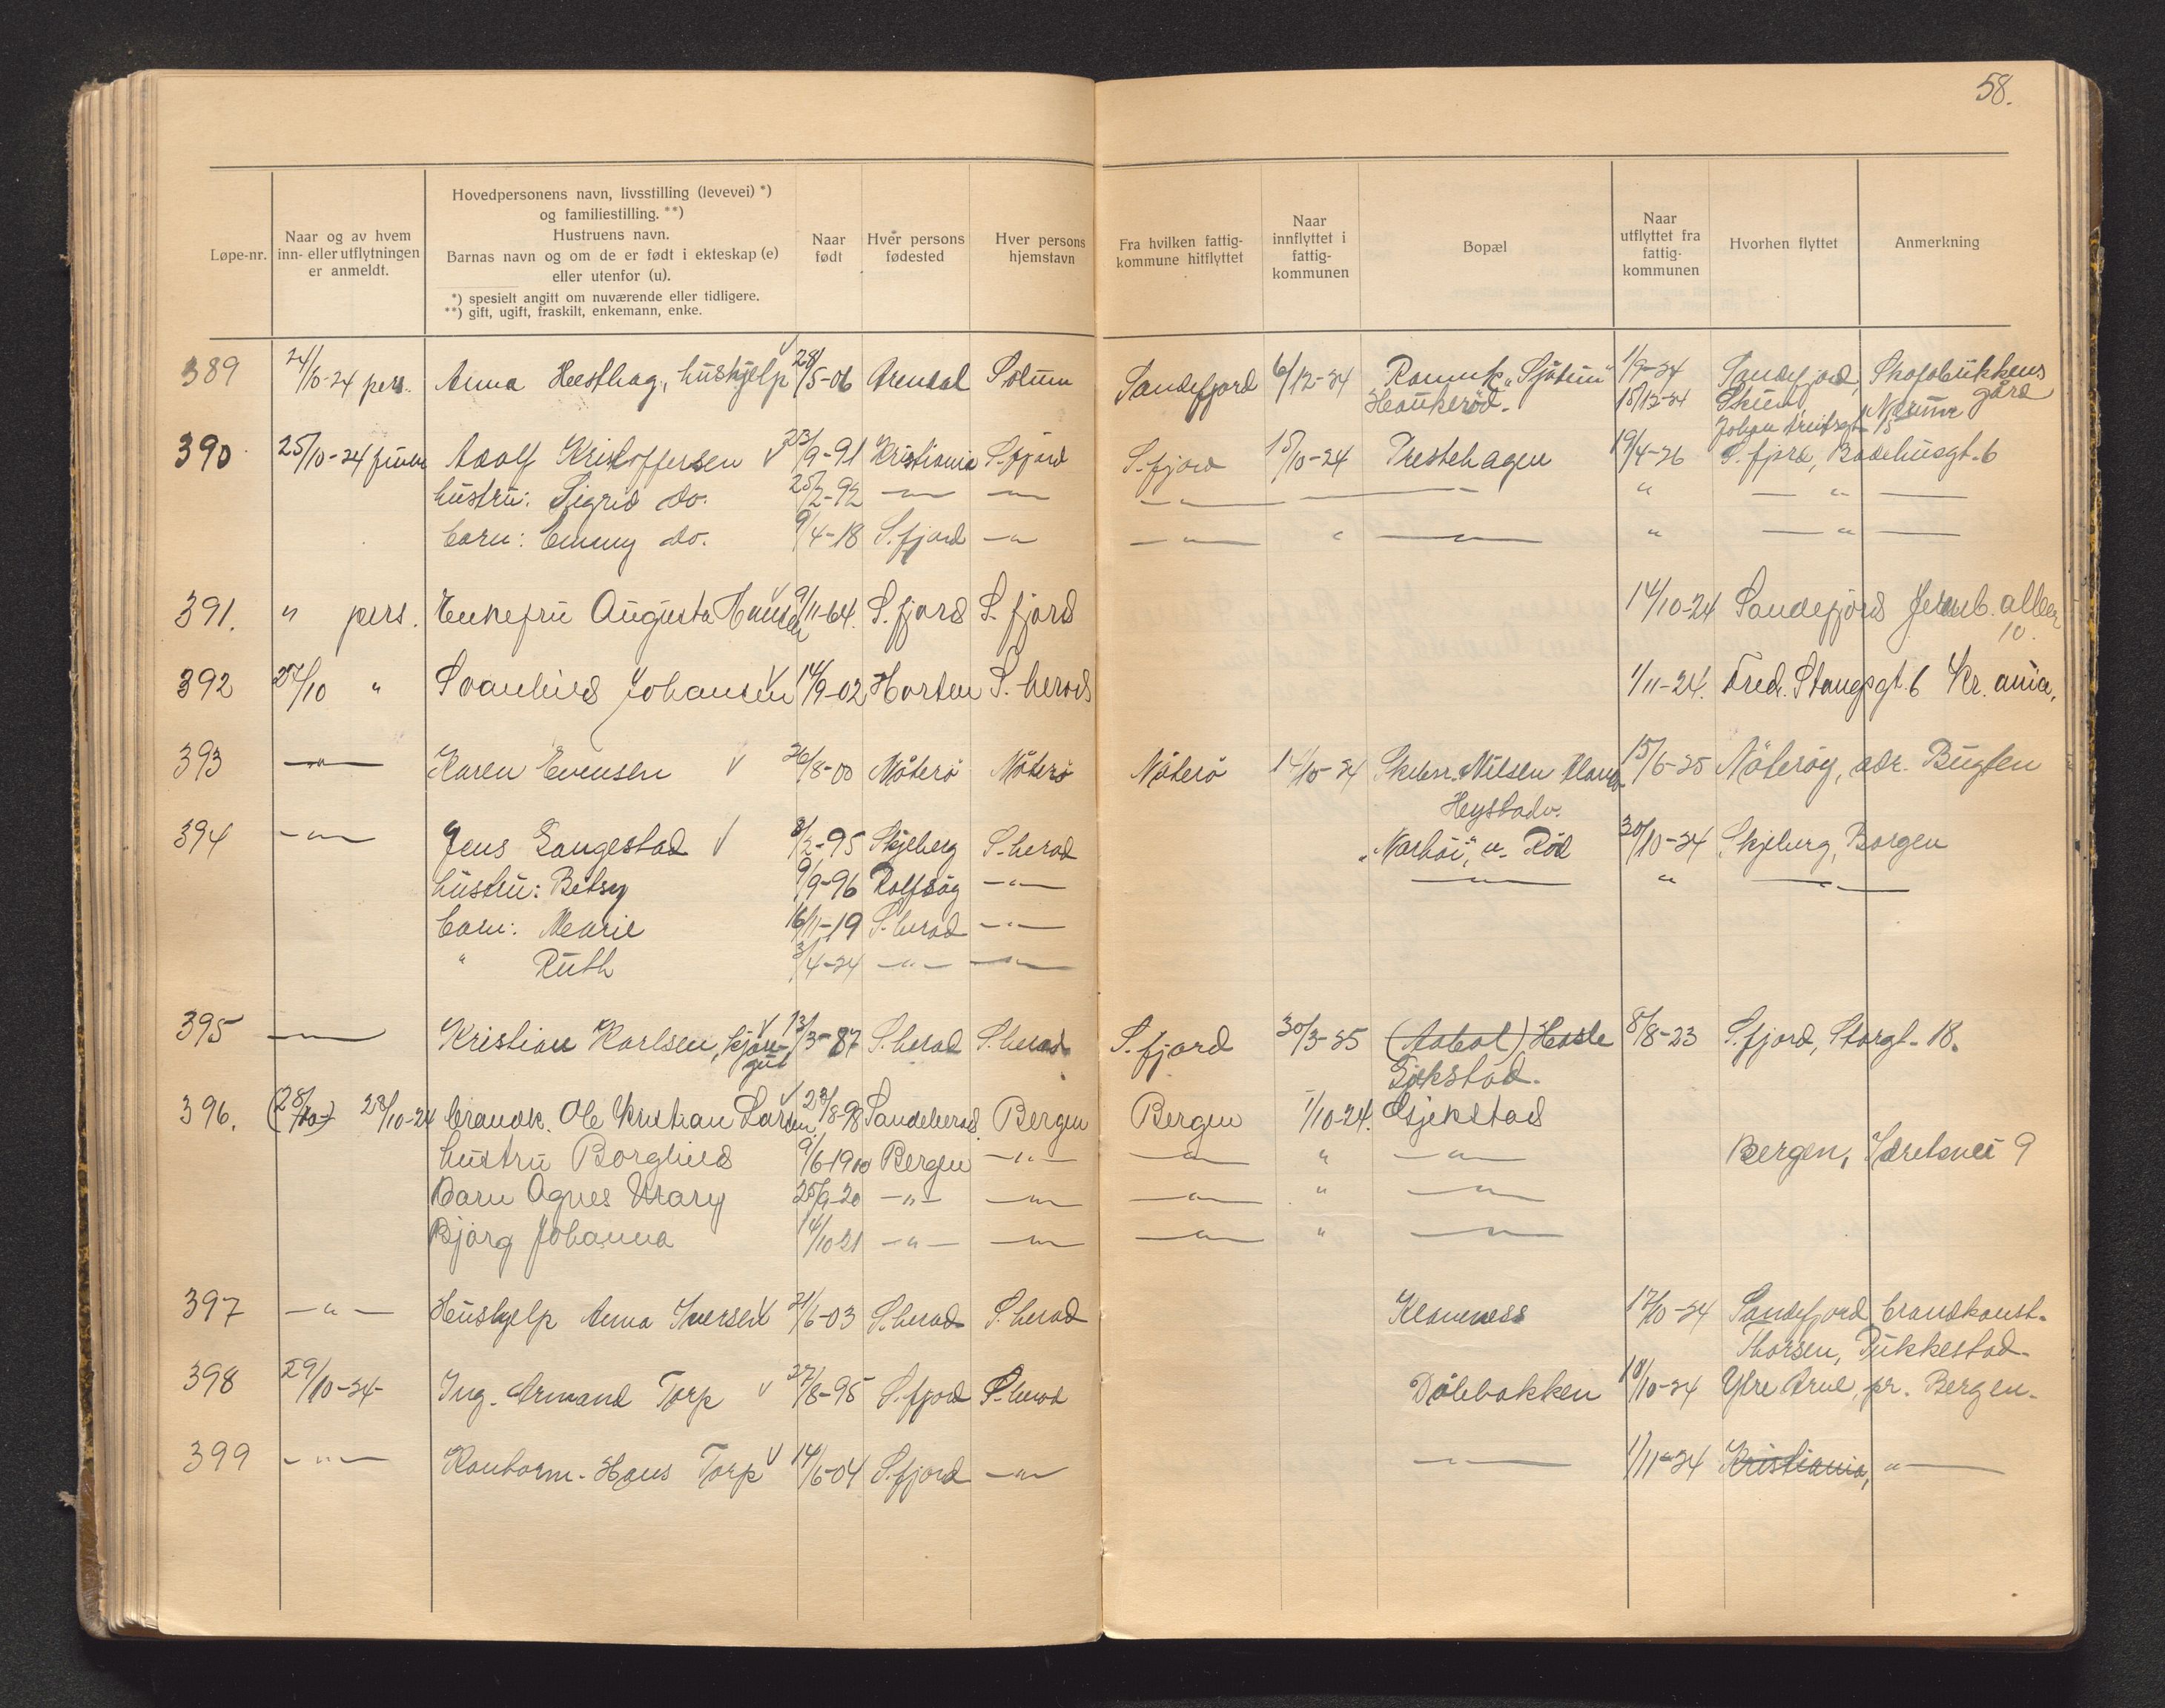 58.
Løpe-nr.
Naar og av hvem inn- eller utflytningen er anmeldt.
Hovedpersonens navn, livsstilling (levevei) *)
og familiestilling. **)
Hustruens navn.
Barnas navn og om de er født i ekteskap (e)
eller utenfor (u).
*) spesielt angitt om nuværende eller tidligere.
**) gift, ugift, fraskilt, enkemann, enke.
Naar født
Hver persons fødested
Hver persons hjemstavn
Fra hvilken fattig-kommune hitflyttet
Naar innflyttet i fattig-kommunen
Bopæl
Naar utflyttet fra fattig-kommunen
Hvorhen flyttet
Anmerkning
389 24/10-24 pers. Anna Heesthag, hushjelp 28/5-06 Arendal Solum Sandefjord 6/12-24 "Sjøtun" 1/9-24 Sandefjord, Skofabrikkens gård
Haukerød. 18/12-24 Skien
390 25/10-24 Adolf Kristoffersen 23/9-91 Kristiania S.fjord S.fjord 15/10-24 Prestehagen 19/4-26 S.fjord, Badehusgt. 6
hustru: Sigrid do. 25/2-92 —"— —"— —"— " —"—
barn: Emmy do. 9/4-18 S.fjord —"— —"— " —"— " —"—
391. " pers. Enkefru Augusta Hansen 9/11-64. S.fjord S.fjord 14/10-24 Sandefjord Jernb. alleen
10.
392 27/10 " Svanhild Johansen 14/9-02 Horten S.herad 1/11-24. Fred. Stangsgt. 6 Kr.ania.
393 —"— Karen Evensen 26/8-00 Nøterø Nøterø Nøterø 14/10-24 Nilsen 15/6-25 Nøterøy, adr. Bugten
Heystadv.
394 —"— Jens Langestad 8/2-95 Skjeberg S.herad 30/10-24 Skjeberg, Borgen
hustru: Betsy 9/9-96 Rolfsøy —"— —"— " —"—
barn: Marie 16/11-19 S.herad —"—
" Ruth 3/4-24 —"— —"—
395 —"— Kristian Karlsen, 13/3-87 S.herad S.herad S.fjord 30/3-25 Hasle 8/8-23 S.fjord, Storgt. 18.
Gjekstad.
396. (28/10-) 28/10-24 brandk. Ole Kristian Larsen 23/8-98 Sandeherad Bergen Bergen 1/10-24. Gjekstad
hustru Borghild 9/6-1900 Bergen —"— —"— " —"— Bergen, Idretsvei 9
Barn Agnes Mary 25/9-20 —"— —"— —"— " —"—
Bjørg Johanna 14/10-21 —"— —"— —"— " —"—
397 —"— Hushjelp Anna Iversen 21/6-03 S.herad S.herad Klaveness 17/10-24 Sandefjord brandkonst.
Thorsen, Pukkestad.
398 29/10-24- Ing. Armand Torp 27/8-95 S.fjord S.herad Dølebakken 18/10-24 Ytre Arne, pr. Bergen.
399 —"— Kontorm. Hans Torp 14/6-04 S.fjord —"— —"— 1/11-24 Kristiania, "—